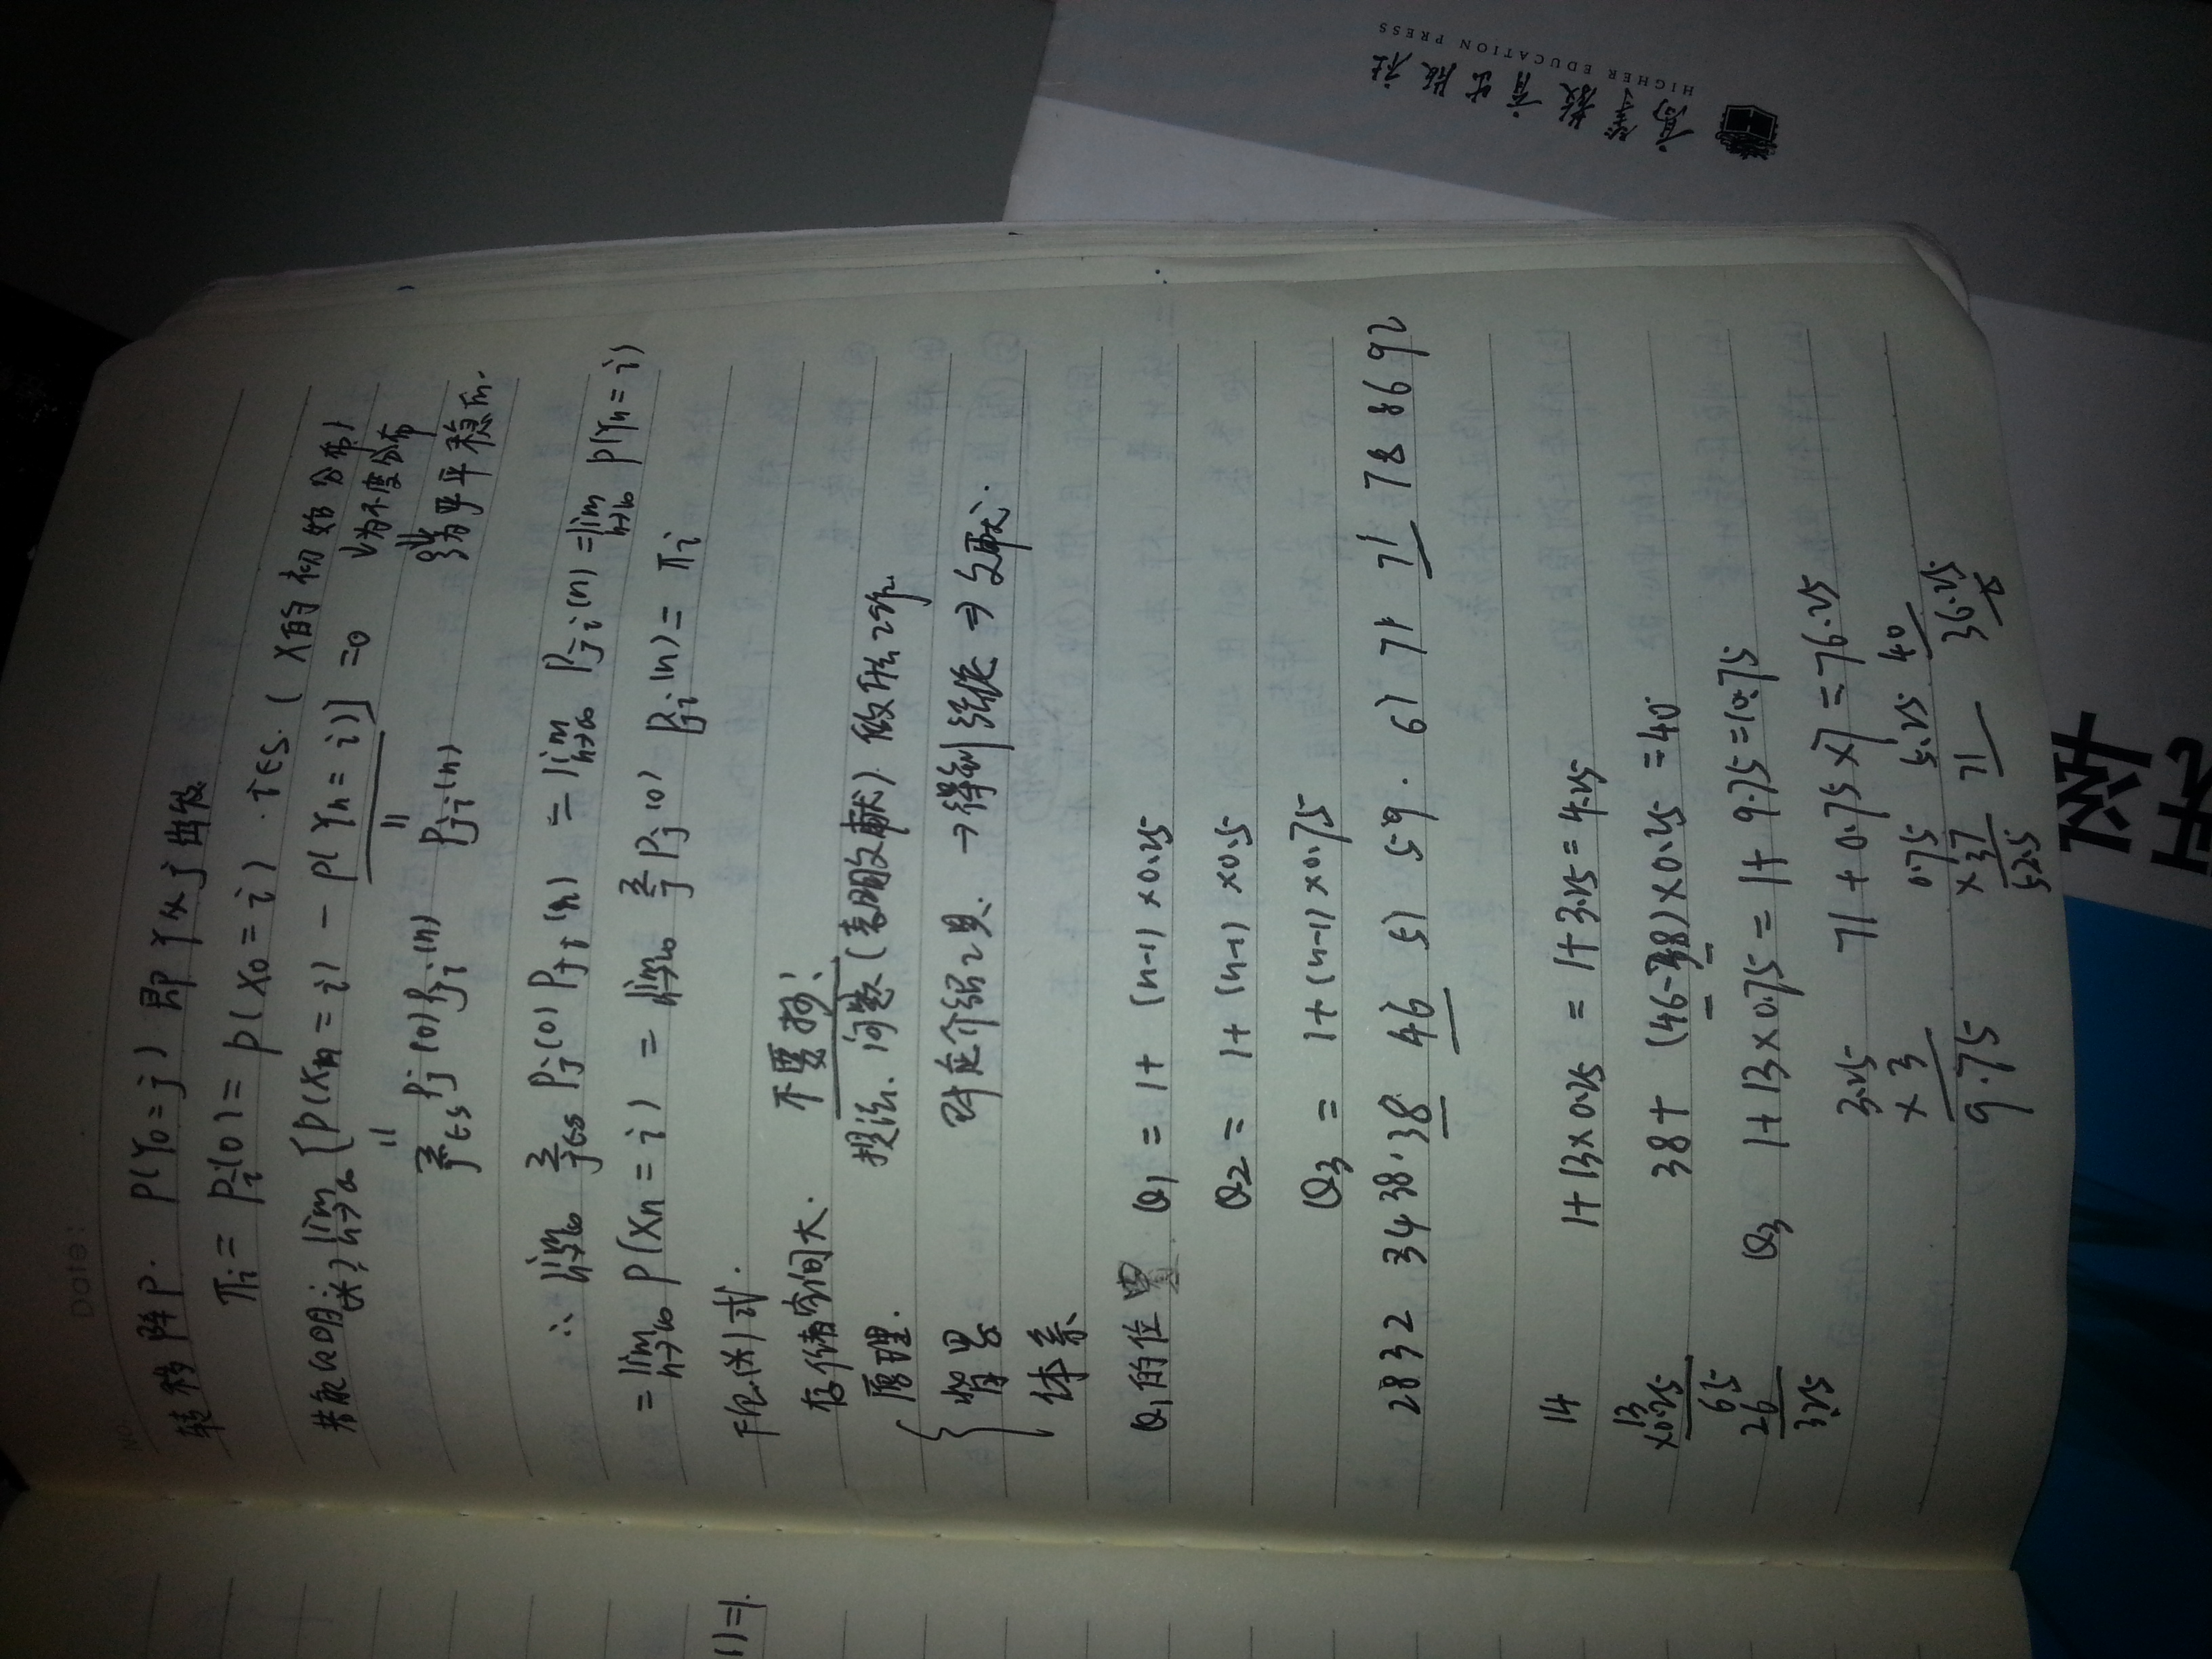 Date:
NO.
转移阵P. P(Y₀=j) 即Y从j出发
πᵢ = Pᵢ(0) = P(X₀=i) . i∈S. (X的初始分布)
↓为不变分布
若能证明: (*) lim n→∞ [P(Xn=i) - P(Yn=i)] =0
|| ||
Σ j∈S Pj(0)Pji(n) Pji(n)
为严平稳的.
∴ lim n→∞ Σ j∈S Pj(0) Pji(n) = lim n→∞ Pji(n) = lim n→∞ P(Yn=i)
= lim n→∞ P(Xn=i) = lim n→∞ Σ j Pj(0) Pji(n) = πᵢ
下证(*)式.
存储空间大. 不要抄!
原理. 提法、问题(表明文献) 做什么工作.
背景 对应介绍工具. →得到结论 ⇒ 文献.
体系
Q₁的位置 Q₁ = 1+ (n-1)×0.25
Q₂ = 1+(n-1)×0.5
Q₃ = 1+(n-1)×0.75
28 32 34 38 38 46 51 59 61 71 71 78 86 92
14 1+13×0.25 = 1+3.25=4.25
13
×0.25
65
26
3.25
38+ (46-38)×0.25 =40
Q₃ 1+13×0.75 = 1+9.75=10.75
71+0.75×7=76.25
3.25
×3
9.75
0.75
5.25
71
40
36.25
52.5
1)=1.
高等教育出版社
HIGHER EDUCATION PRESS